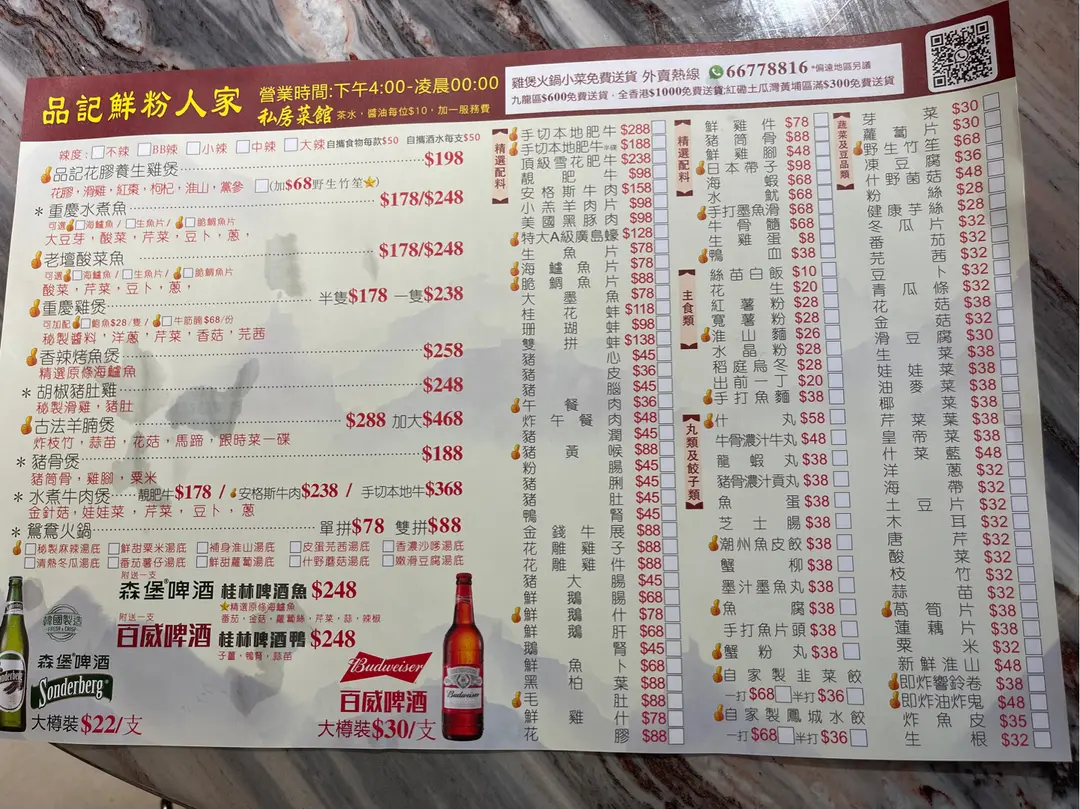 品記鮮粉人家
營業時間:下午4:00-凌晨00:00
私房菜館 茶水,醬油每位$10,加一服務費
雞煲火鍋小菜免費送貨 外賣熱線 66778816 *偏遠地區另議
九龍區$600免費送貨,全香港$1000免費送貨;紅磡土瓜灣黃埔區滿$300免費送貨
辣度: 不辣 BB辣 小辣 中辣 大辣 自攜食物每款$50 自攜酒水每支$50
品記花膠養生雞煲 $198
花膠,滑雞,紅棗,枸杞,淮山,黨參 (加$68野生竹笙)
*重慶水煮魚 $178/$248
可選 海鱸魚 / 生魚片 / 脆鯛魚片
大豆芽,酸菜,芹菜,豆卜,蔥,
老壇酸菜魚 $178/$248
可選 海鱸魚 / 生魚片 / 脆鯛魚片
酸菜,芹菜,豆卜,蔥,
重慶雞煲 半隻$178 一隻$238
可加配 鮑魚$28/隻 / 牛筋腩$68/份
秘製醬料,洋蔥,芹菜,香菇,芫茜
香辣烤魚煲 $258
精選原條海鱸魚
*胡椒豬肚雞 $248
秘製滑雞,豬肚
古法羊腩煲 $288 加大$468
炸枝竹,蒜苗,花菇,馬蹄,跟時菜一碟
*豬骨煲 $188
豬筒骨,雞腳,粟米
*水煮牛肉煲 靚肥牛$178 / 安格斯牛肉$238 / 手切本地牛$368
金針菇,娃娃菜,芹菜,豆卜,蔥
*鴛鴦火鍋 單拼$78 雙拼$88
秘製麻辣湯底 鮮甜粟米湯底 補身淮山湯底 皮蛋芫茜湯底 香濃沙嗲湯底
清熱冬瓜湯底 番茄薯仔湯底 鮮甜蘿蔔湯底 什野蘑菇湯底 嫩滑豆腐湯底
附送一支
森堡®啤酒 桂林啤酒魚 $248
精選原條海鱸魚
番茄,金菇,蘿蔔絲,芹菜,蒜,辣椒
附送一支
百威啤酒 桂林啤酒鴨 $248
子薑,鴨腎,蒜苗
韓國製造
森堡®啤酒
Sonderberg
大樽裝$22/支
Budweiser
百威啤酒
大樽裝$30/支
Budweiser
精選配料
手切本地肥牛 $288
手切本地肥牛骨 $188
頂級雪花肥牛 $238
靚肥牛 $98
安格斯牛肉 $158
小羔羊肉片 $98
美國黑豚肉 $98
特大A級廣島蠔 $128
生魚片 $78
海鱸魚片 $78
脆鯛魚片 $78
大墨魚 $78
桂花蚌 $118
珊瑚蚌 $98
雙拼蚌 $138
豬心 $45
豬皮 $36
豬腦 $45
午餐肉 $36
炸午餐肉 $48
豬潤 $45
豬黃喉 $88
粉腸 $45
豬脷 $45
豬肚 $45
鴨腎 $45
金錢牛展 $88
花雕雞子 $88
花雕雞 $88
豬大腸 $45
鮮鵝腸 $68
鮮鵝什 $78
鮮鵝肝 $68
鵝腎 $45
鮮魚卜 $68
黑柏葉 $88
毛肚 $88
鮮雞什 $78
花膠 $88
精選配料
鮮雞件 $78
豬骨 $88
鮮雞腳 $48
日本帶子 $98
海蝦 $68
水魷 $68
手打墨魚滑 $68
牛骨髓 $68
生雞蛋 $8
鴨血 $38
主食類
絲苗白飯 $10
花生 $20
紅薯粉 $28
寬薯粉 $28
淮山麵 $26
水晶粉 $28
稻庭烏冬 $28
出前一丁 $20
手打魚麵 $38
丸類及餃子類
什丸 $58
牛骨濃汁牛丸 $48
龍蝦丸 $38
豬骨濃汁貢丸 $38
魚蛋 $38
芝士腸 $38
潮州魚皮餃 $38
蟹柳 $38
墨汁墨魚丸 $38
魚腐 $38
手打魚片頭 $38
蟹粉丸 $38
自家製韭菜餃
一打$68 半打$36
自家製鳳城水餃
一打$68 半打$36
蔬菜及豆品類
芽菜 $30
蘿蔔片 $30
野竹笙 $68
凍豆腐 $36
什野菌菇 $56
粉絲 $28
健康芋絲 $28
冬瓜片 $32
番茄 $32
芫茜 $32
豆卜 $32
青瓜條 $32
花菇 $38
金菇 $32
滑豆腐 $30
生菜 $38
娃娃菜 $38
油麥菜 $38
椰菜 $38
芹菜 $38
皇帝菜 $38
什菜籃 $48
洋蔥 $32
海帶 $32
土豆片 $32
木耳 $32
唐芹 $32
酸菜 $32
枝竹 $32
蒜苗 $32
萵筍片 $38
蓮藕片 $38
粟米 $32
新鮮淮山 $48
即炸響鈴卷 $38
即炸油炸鬼 $48
炸魚皮 $35
生根 $32